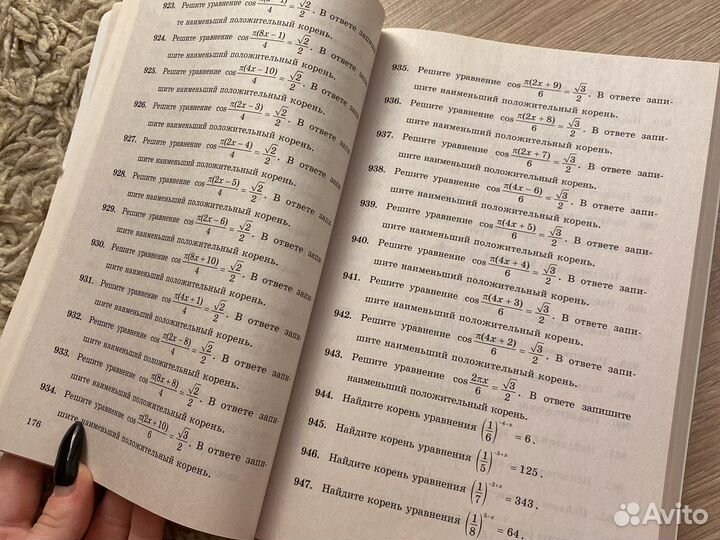 923. Решите уравнение cos
те наименьший положительный корень.
924. Решите уравнение cos π(8x − 1)/4 = √2/2. В ответе запи-
шите наименьший положительный корень.
925. Решите уравнение cos π(4x − 10)/4 = √2/2. В ответе запи-
шите наименьший положительный корень.
926. Решите уравнение cos π(2x − 3)/4 = √2/2. В ответе запи-
шите наименьший положительный корень.
927. Решите уравнение cos π(2x − 4)/4 = √2/2. В ответе запи-
шите наименьший положительный корень.
928. Решите уравнение cos π(2x − 5)/4 = √2/2. В ответе запи-
шите наименьший положительный корень.
929. Решите уравнение cos π(2x − 6)/4 = √2/2. В ответе запи-
шите наименьший положительный корень.
930. Решите уравнение cos π(8x + 10)/4 = √2/2. В ответе запи-
шите наименьший положительный корень.
931. Решите уравнение cos π(4x + 1)/4 = √2/2. В ответе запи-
шите наименьший положительный корень.
932. Решите уравнение cos π(2x − 8)/4 = √2/2. В ответе запи-
шите наименьший положительный корень.
933. Решите уравнение cos π(8x + 8)/4 = √2/2. В ответе запи-
шите наименьший положительный корень.
934. Решите уравнение cos π(2x + 10)/6 = √3/2. В ответе запи-
шите наименьший положительный корень.
176
935. Решите уравнение cos π(2x + 9)/6 = √3/2. В ответе запи-
шите наименьший положительный корень.
936. Решите уравнение cos π(2x + 8)/6 = √3/2. В ответе запи-
шите наименьший положительный корень.
937. Решите уравнение cos π(2x + 7)/6 = √3/2. В ответе запи-
шите наименьший положительный корень.
938. Решите уравнение cos π(4x − 6)/6 = √3/2. В ответе запи-
шите наименьший положительный корень.
939. Решите уравнение cos π(4x + 5)/6 = √3/2. В ответе запи-
шите наименьший положительный корень.
940. Решите уравнение cos π(4x + 4)/6 = √3/2. В ответе запи-
шите наименьший положительный корень.
941. Решите уравнение cos π(4x + 3)/6 = √3/2. В ответе запи-
шите наименьший положительный корень.
942. Решите уравнение cos π(4x + 2)/6 = √3/2. В ответе запи-
шите наименьший положительный корень.
943. Решите уравнение cos 2πx/6 = √3/2. В ответе запишите
наименьший положительный корень.
944. Найдите корень уравнения (1/6)^(−4−x) = 6.
945. Найдите корень уравнения (1/5)^(−5+x) = 125.
946. Найдите корень уравнения (1/7)^(−2+x) = 343.
947. Найдите корень уравнения (1/8)^(3−x) = 64.
Avito